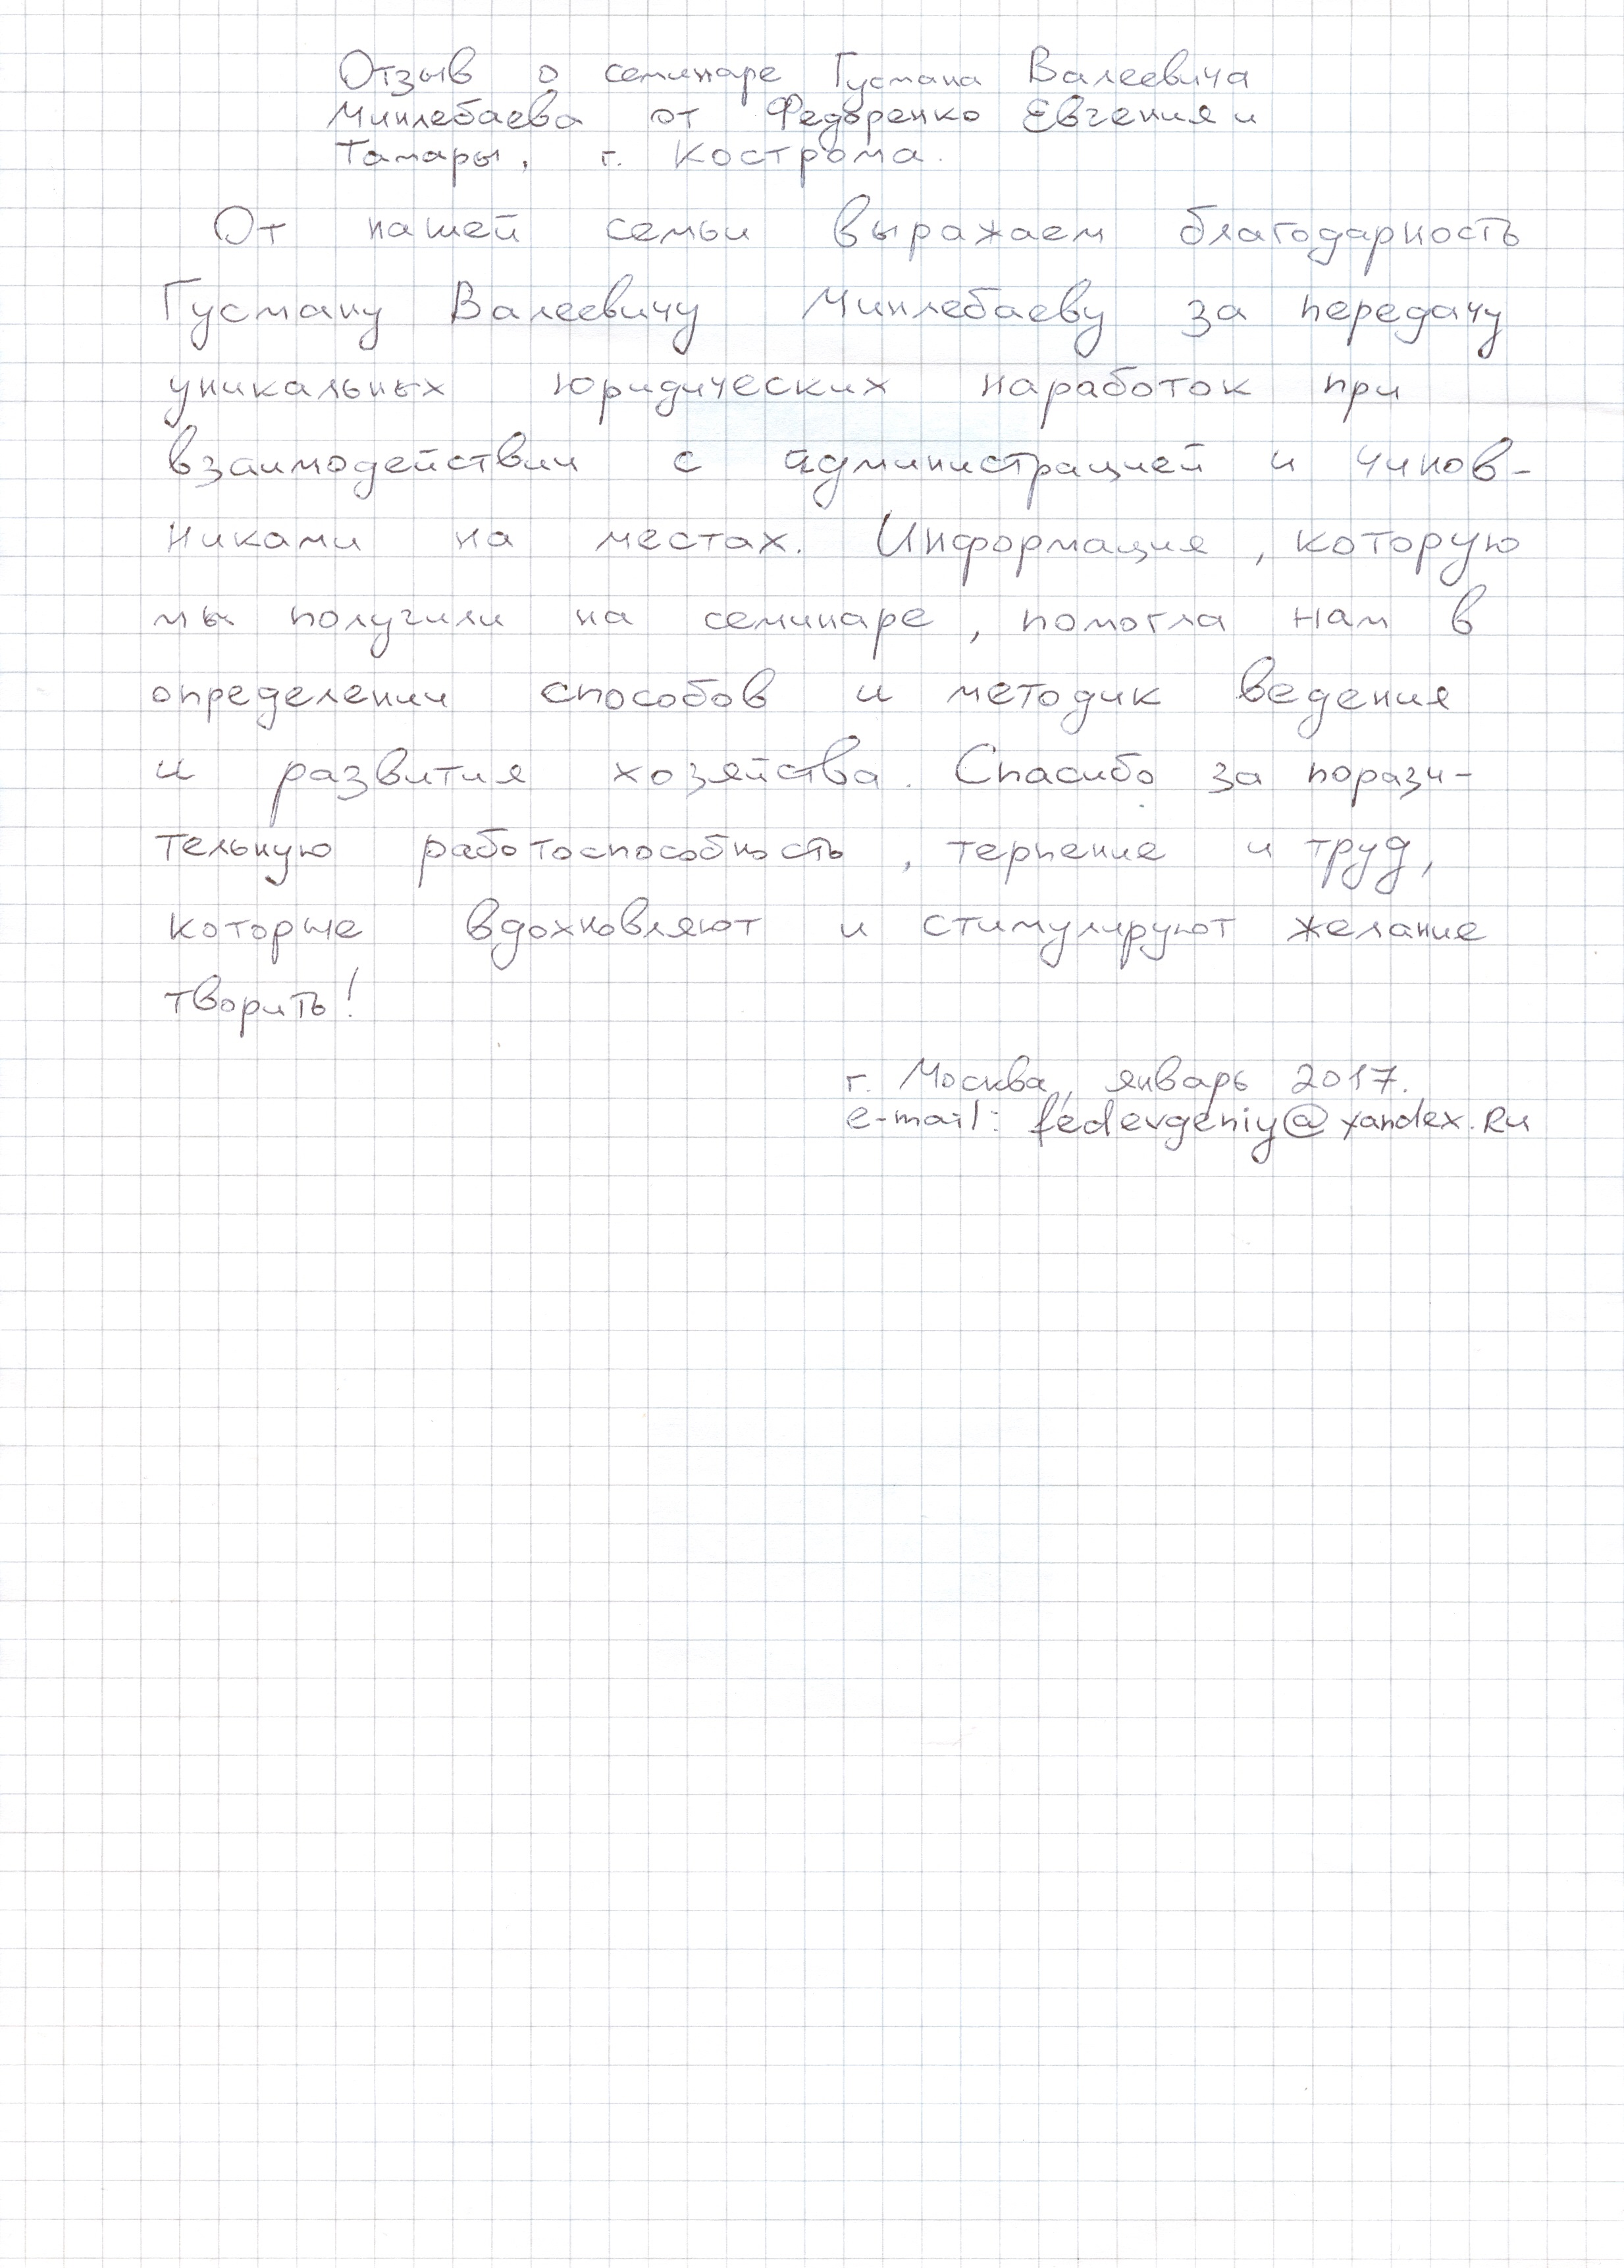 Отзыв о семинаре Гусмана Валеевича
Минлебаева от Федоренко Евгения и
Тамары, г. Кострома.
От нашей семьи выражаем благодарность
Гусману Валеевичу Минлебаеву за передачу
уникальных юридических наработок при
взаимодействии с администрацией и чинов-
никами на местах. Информация, которую
мы получили на семинаре, помогла нам в
определении способов и методик ведения
и развития хозяйства. Спасибо за порази-
тельную работоспособность, терпение и труд,
которые вдохновляют и стимулируют желание
творить!
г. Москва, январь 2017.
e-mail: fedevgeniy@yandex.Ru